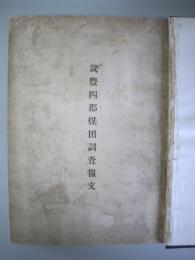 筑豐四郡煤田調査報文